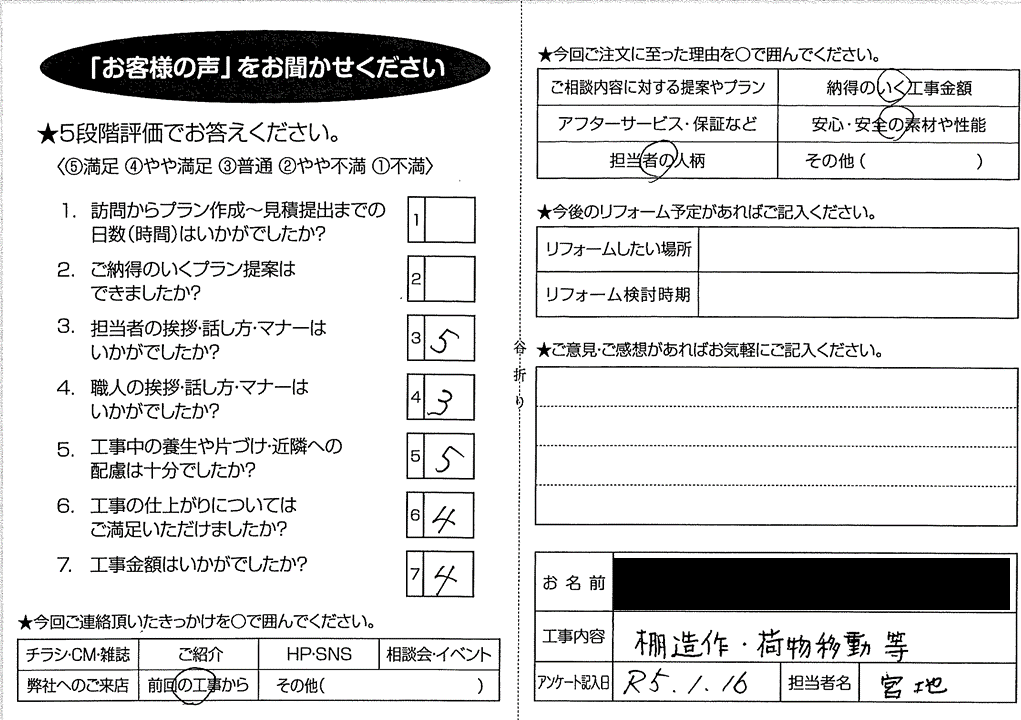 「お客様の声」をお聞かせください
★5段階評価でお答えください。
〈⑤満足 ④やや満足 ③普通 ②やや不満 ①不満〉
1. 訪問からプラン作成〜見積提出までの
日数(時間)はいかがでしたか?
1
2. ご納得のいくプラン提案は
できましたか?
2
3. 担当者の挨拶・話し方・マナーは
いかがでしたか?
3 5
4. 職人の挨拶・話し方・マナーは
いかがでしたか?
4 3
5. 工事中の養生や片づけ・近隣への
配慮は十分でしたか?
5 5
6. 工事の仕上がりについては
ご満足いただけましたか?
6 4
7. 工事金額はいかがでしたか?
7 4
★今回ご連絡頂いたきっかけを〇で囲んでください。
チラシ・CM・雑誌 ご紹介 HP・SNS 相談会・イベント
弊社へのご来店 前回の工事から その他( )
谷折り
★今回ご注文に至った理由を〇で囲んでください。
ご相談内容に対する提案やプラン 納得のいく工事金額
アフターサービス・保証など 安心・安全の素材や性能
担当者の人柄 その他( )
★今後のリフォーム予定があればご記入ください。
リフォームしたい場所
リフォーム検討時期
★ご意見・ご感想があればお気軽にご記入ください。
お名前
工事内容 棚造作・荷物移動等
アンケート記入日 R5.1.16 担当者名 宮地